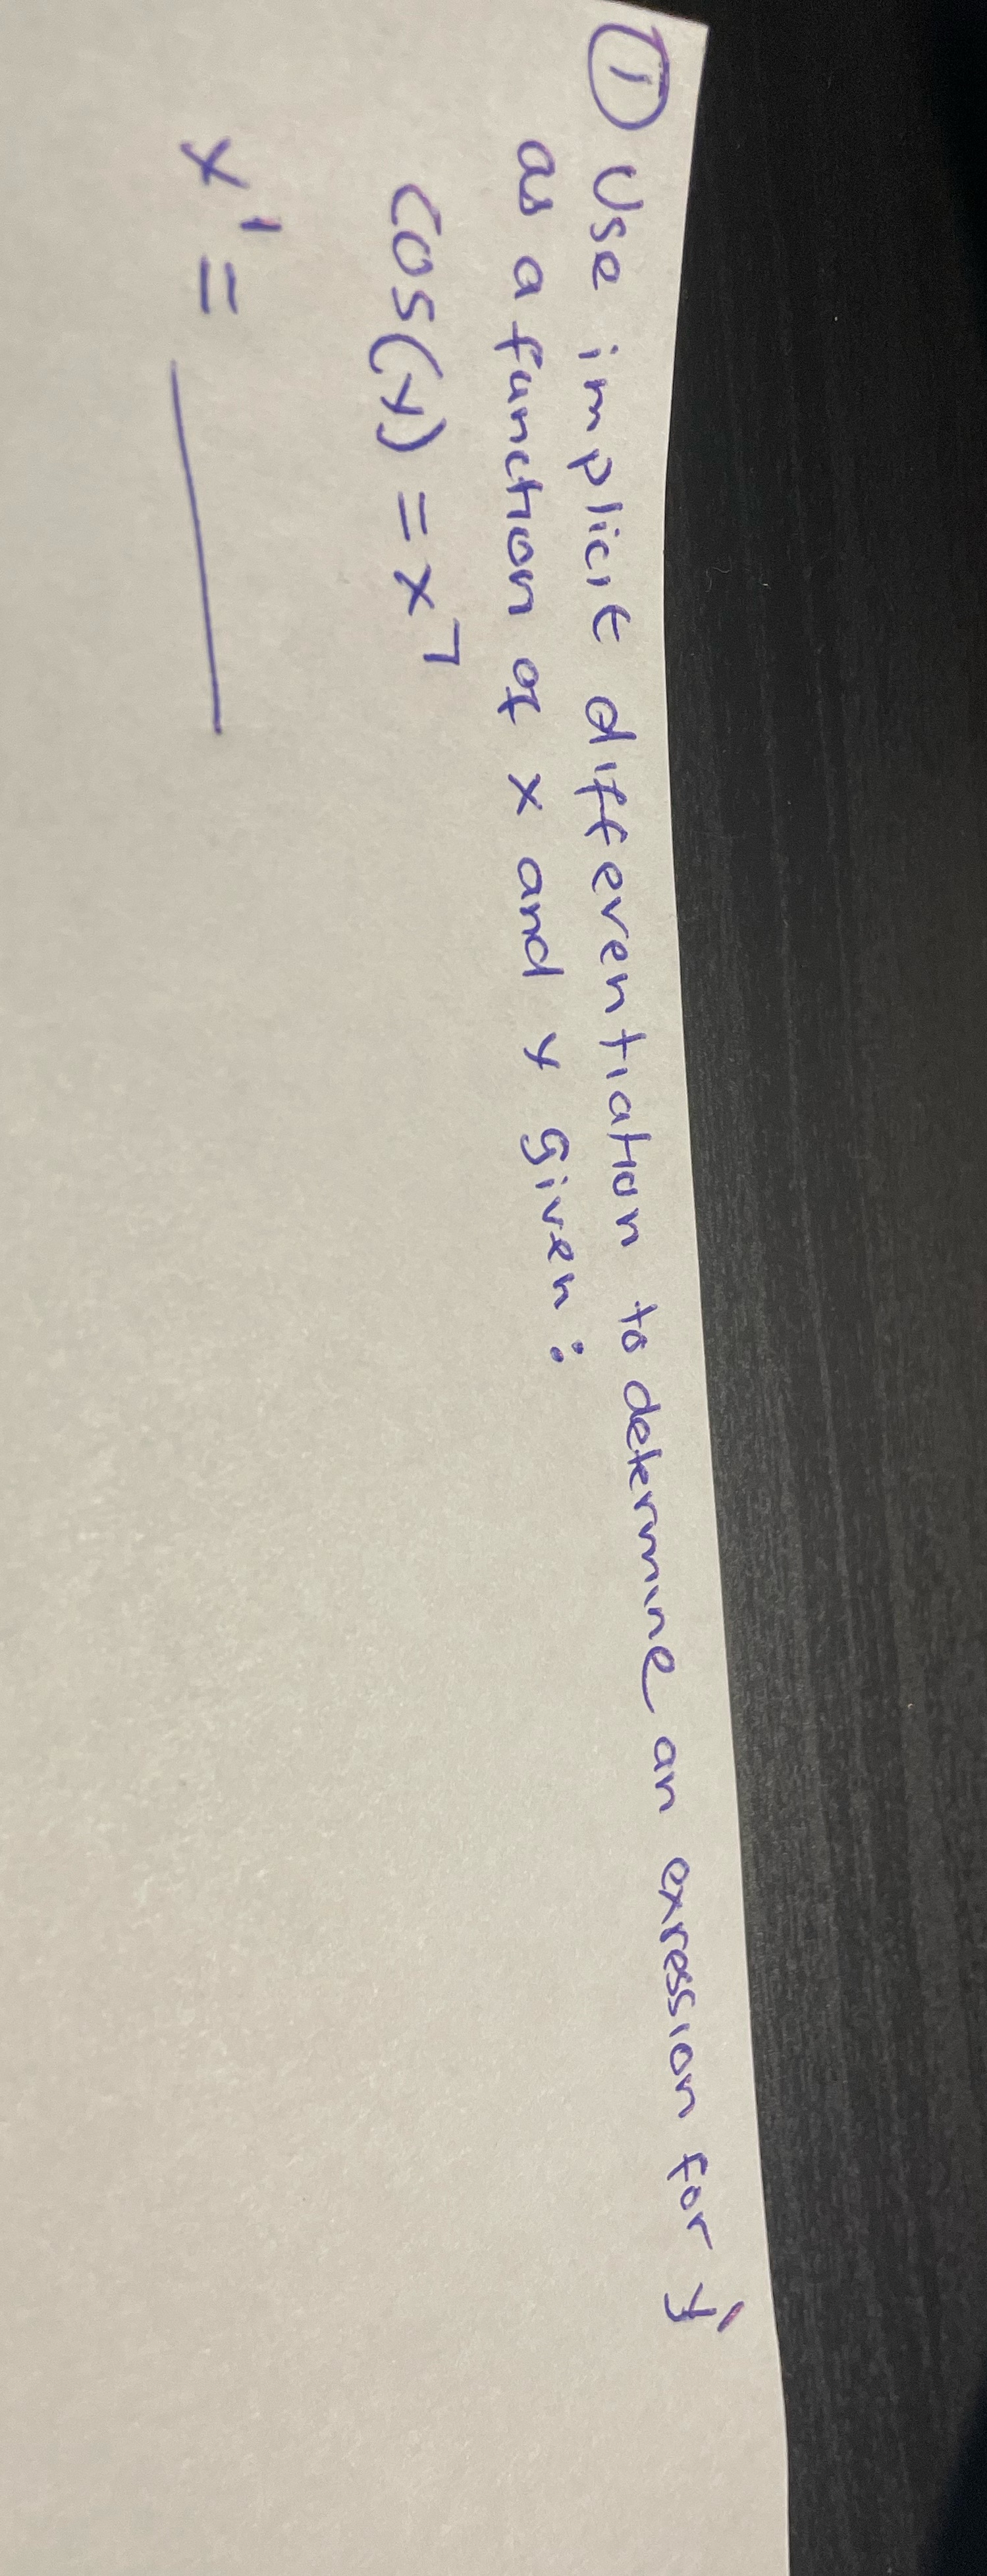 ① Use implicit differentiation to determine an exression for y'
as a function of x and y given:
cos(y) = x⁷
y' = ______